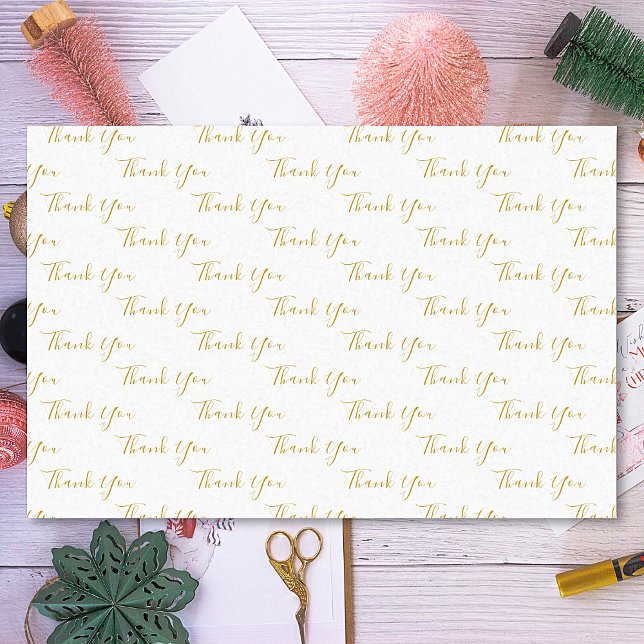 Thank You Thank You Thank You Thank You
You Thank You Thank You Thank You Thank
Thank You Thank You Thank You Thank You
You Thank You Thank You Thank You Thank
Thank You Thank You Thank You Thank You
You Thank You Thank You Thank You Thank
Thank You Thank You Thank You Thank You
You Thank You Thank You Thank You Thank
Thank You Thank You Thank You Thank You
You Thank You Thank You Thank You Thank
Thank You Thank You Thank You Thank You
You Thank You Thank You Thank You Thank